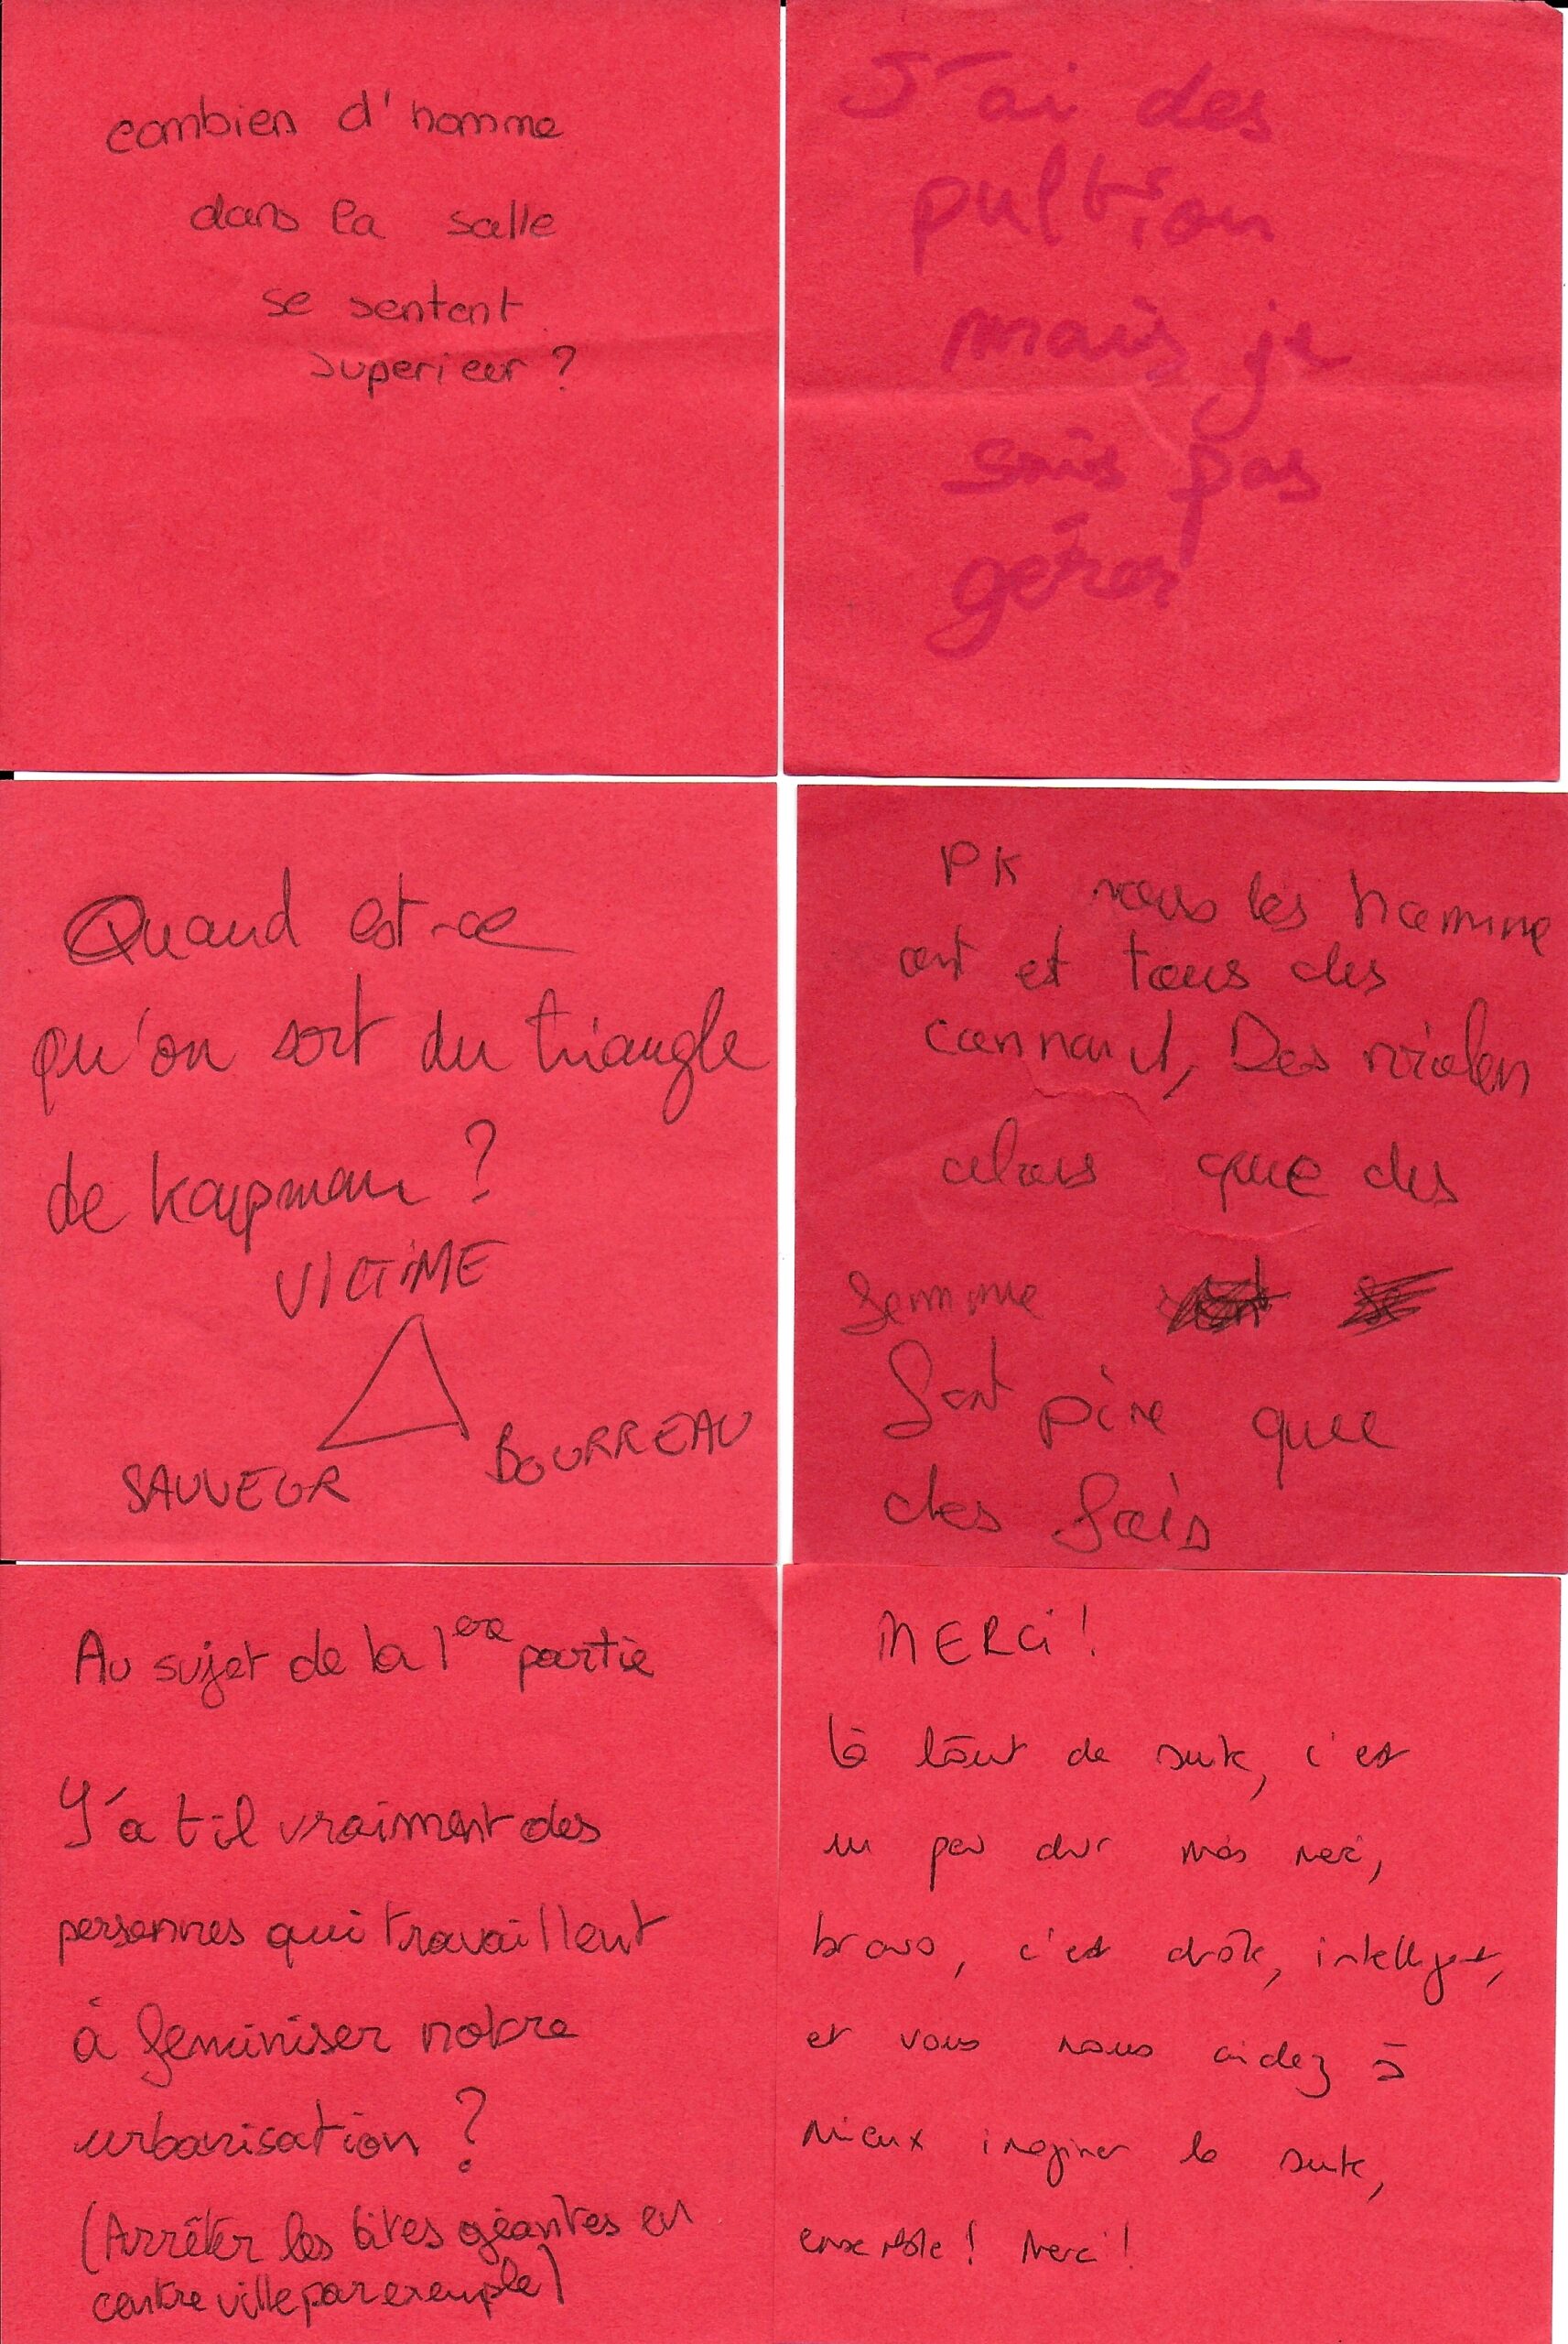 combien d'homme
dans la salle
se sentent
superieur ?
J'ai des
pultion
mais je
sais pas
gérer
Quand est-ce
qu'on sort du triangle
de kaupman ?
VICTIME
SAUVEUR
BOURREAU
PK nous les homme
ont et tous des
connard, Des violen
alors que des
femme
font pire que
des fois
Au sujet de la 1ère partie
Y'a t-il vraiment des
personnes qui travaillent
à feminiser notre
urbanisation ?
(Arrêter les bites géantes en
centre ville par exemple)
MERCi !
Là tout de suite, c'est
un peu dur mais merci,
bravo, c'est drôle, intelligent,
et vous nous aidez à
mieux imaginer la suite,
ensemble ! Merci !